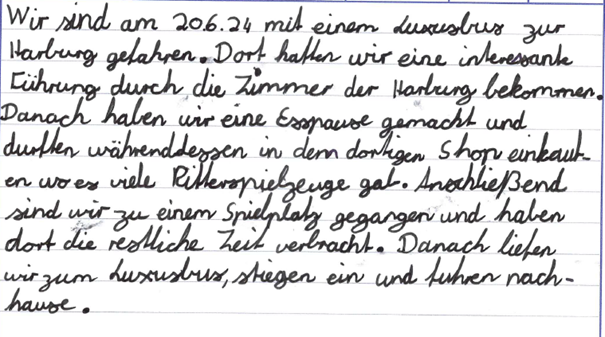 Wir sind am 20.6.24 mit einem Luxusbus zur
Harburg gefahren. Dort hatten wir eine interessante
Führung durch die Zimmer der Harburg bekommen.
Danach haben wir eine Esspause gemacht und
durften währenddessen in dem dortigen Shop einkauf-
en wo es viele Ritterspielzeuge gab. Anschließend
sind wir zu einem Spielplatz gegangen und haben
dort die restliche Zeit verbracht. Danach liefen
wir zum Luxusbus, stiegen ein und fuhren nach-
hause.